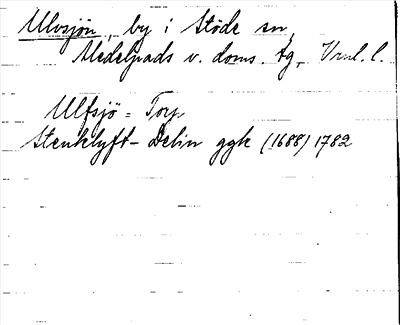 Ulvsjön, by i Stöde sn,
Medelpads v. doms. tg, Vnl. l.
Ulfsjö = Torp
Stenklyft - Delin ggk (1688) 1782